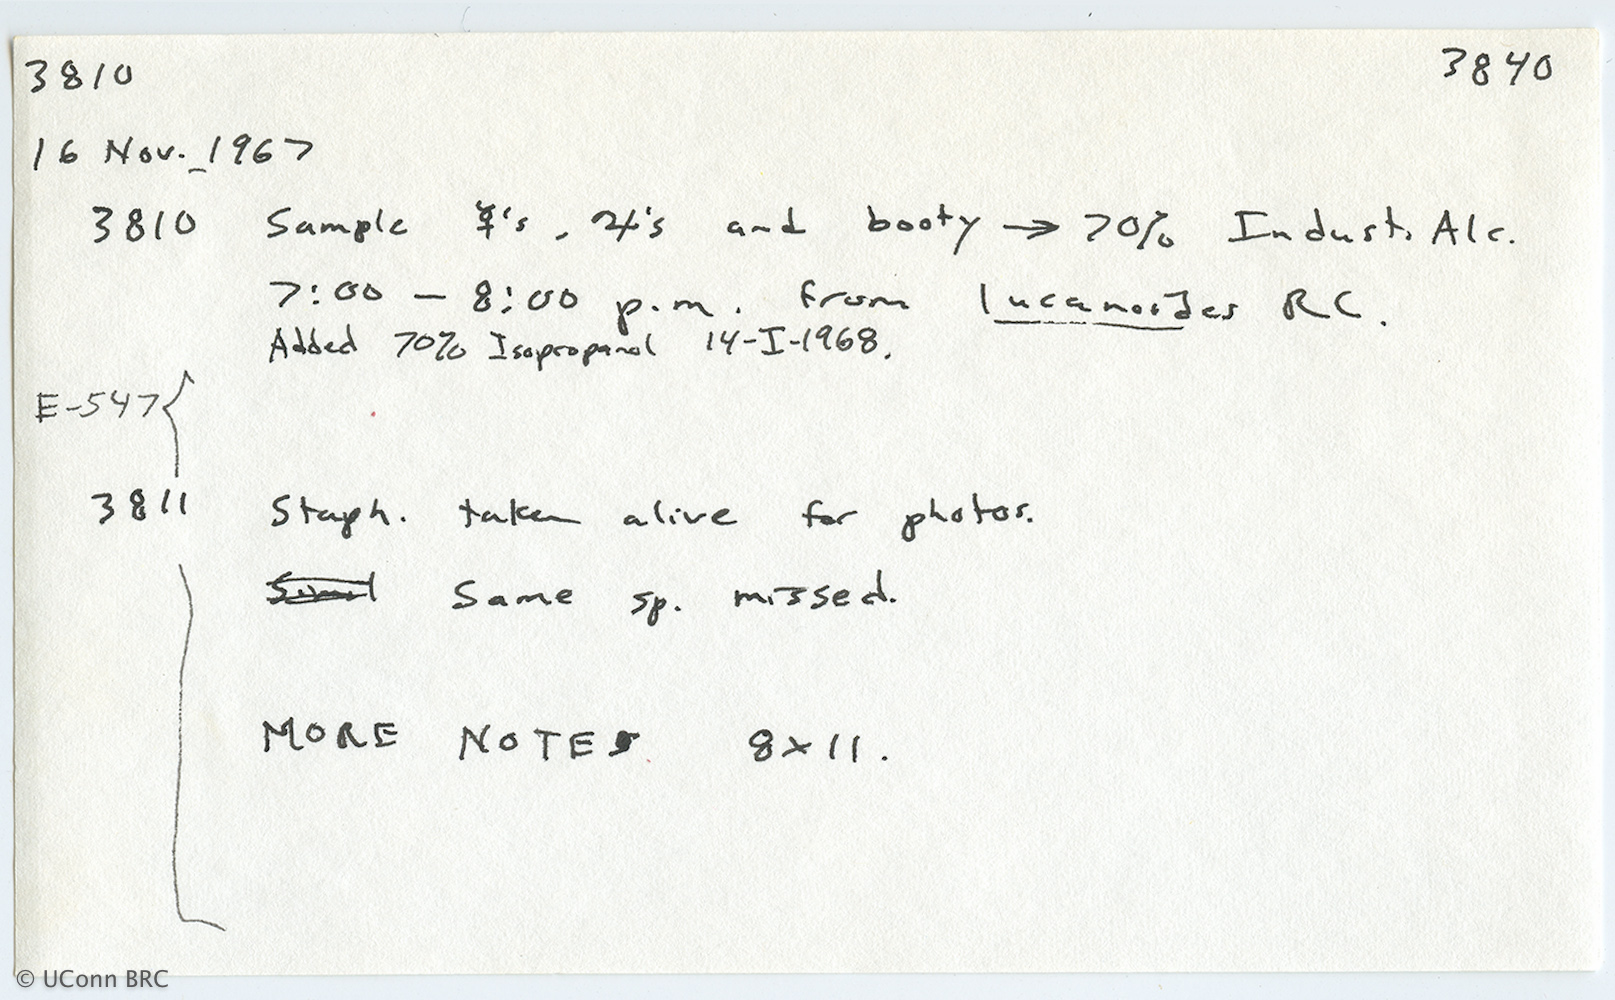 3810 3840
16 Nov. 1967
3810 Sample ☿'s, ♃'s and booty → 70% Indust. Alc.
7:00 - 8:00 p.m. from lucanoides RC.
Added 70% Isopropanol 14-I-1968.
E-547
3811 Staph. taken alive for photos.
Same sp. missed.
MORE NOTES 8x11.
© UConn BRC